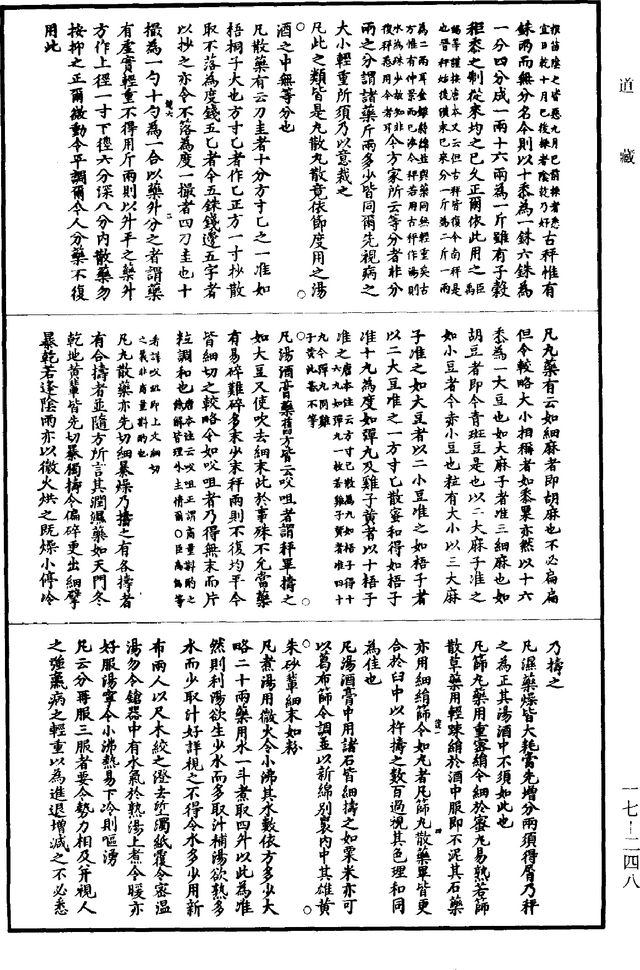 道藏
根苗陸之皆悉九月已前採者悉
宜日乾十月已後採者陰乾乃好
古秤惟有
銖兩而無分名今則以十黍為一銖六銖為
一分四分成一兩十六兩為一斤雖有子穀
秬黍之制從來均之已久正爾依此用之
臣禹
錫等謹按唐本又云但古秤皆復今南秤是
也晉秤始後漢末已來分一斤為二斤一兩
為二兩耳金銀絲綿並與藥同無輕重矣古
方惟有仲景而已涉今秤若用古秤作湯則
水為殊少故知非
復秤悉用今者耳
今方家所云等分者非分
兩之分謂諸藥斤兩多少皆同爾先視病之
大小輕重所須乃以意裁之
凡此之類皆是丸散丸散竟依節度用之湯
酒之中無等分也
凡散藥有云刀圭者十分方寸匕之一准如
梧桐子大也方寸匕者作匕正方一寸抄散
取不落為度錢五匕者今五銖錢邊五字者
以抄之亦令不落為度一撮者四刀圭也十
撮為一勺十勺為一合以藥升分之者謂藥
有虛實輕重不得用斤兩則以升平之藥升
方作上徑一寸下徑六分深八分內散藥勿
按抑之正爾微動令平調爾今人分藥不復
用此
凡丸藥有云如細麻者即胡麻也不必扁扁
但令較略大小相稱者如黍粟亦然以十六
黍為一大豆也如大麻子者准三細麻也如
胡豆者即今青斑豆是也以二大麻子准之
如小豆者今赤小豆也粒有大小以三大麻
子准之如大豆者以二小豆准之如梧子者
以二大豆准之一方寸匕散蜜和得如梧子
准十丸為度如彈丸及雞子黃者以十梧子
准之
唐本注云方寸匕散為丸如梧子得十
六丸如彈丸一枚若雞子黃者准四十
丸今彈丸同雞
子黃此甚不等
凡湯酒膏藥舊方皆云㕮咀者謂秤畢擣之
如大豆又使吹去細末此於事殊不允當藥
有易碎難碎多末少末秤兩則不復均平今
皆細切之較略令如㕮咀者乃得無末而片
粒調和也
唐本注云㕮咀正謂商量斟酌之
餘解皆理外生情爾○臣禹錫等
者詳以㕮即上文細切
之義非商量斟酌也
凡丸散藥亦先切細暴燥乃擣之有各擣者
有合擣者並隨方所言其潤濕藥如天門冬
乾地黃輩皆先切暴獨擣令偏碎更出細擘
暴乾若逢陰雨亦以微火烘之既燥小停冷
乃擣之
凡濕藥燥皆大耗當先增分兩須得屑乃秤
之為正其湯酒中不須如此也
凡篩丸藥用重密絹令細於蜜丸易熟若篩
散草藥用輕疎絹於酒中服即不泥其石藥
亦用細絹篩令如丸者凡篩丸散藥畢皆更
合於臼中以杵擣之數百過視其色理和同
為佳也
凡湯酒膏中用諸石皆細擣之如粟米亦可
以葛布篩令調並以新綿別裹內中其雄黃
朱砂輩細末如粉
凡煮湯用微火令小沸其水數依方多少大
略二十兩藥用水一斗煮取四升以此為准
然則利湯欲生少水而多取汁補湯欲熟多
水而少取汁好詳視之不得令水多少用新
布兩人以尺木絞之澄去垽濁紙覆令密溫
湯勿令鐺器中有水氣於熟湯上煮令暖亦
好服湯寧令小沸熱易下冷則嘔湧
凡云分再服三服者要令勢力相及并視人
之強羸病之輕重以為進退增減之不必悉
一七—二四八